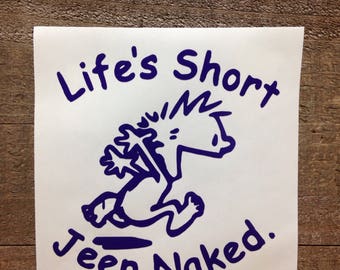 Life's Short
Jeep Naked.